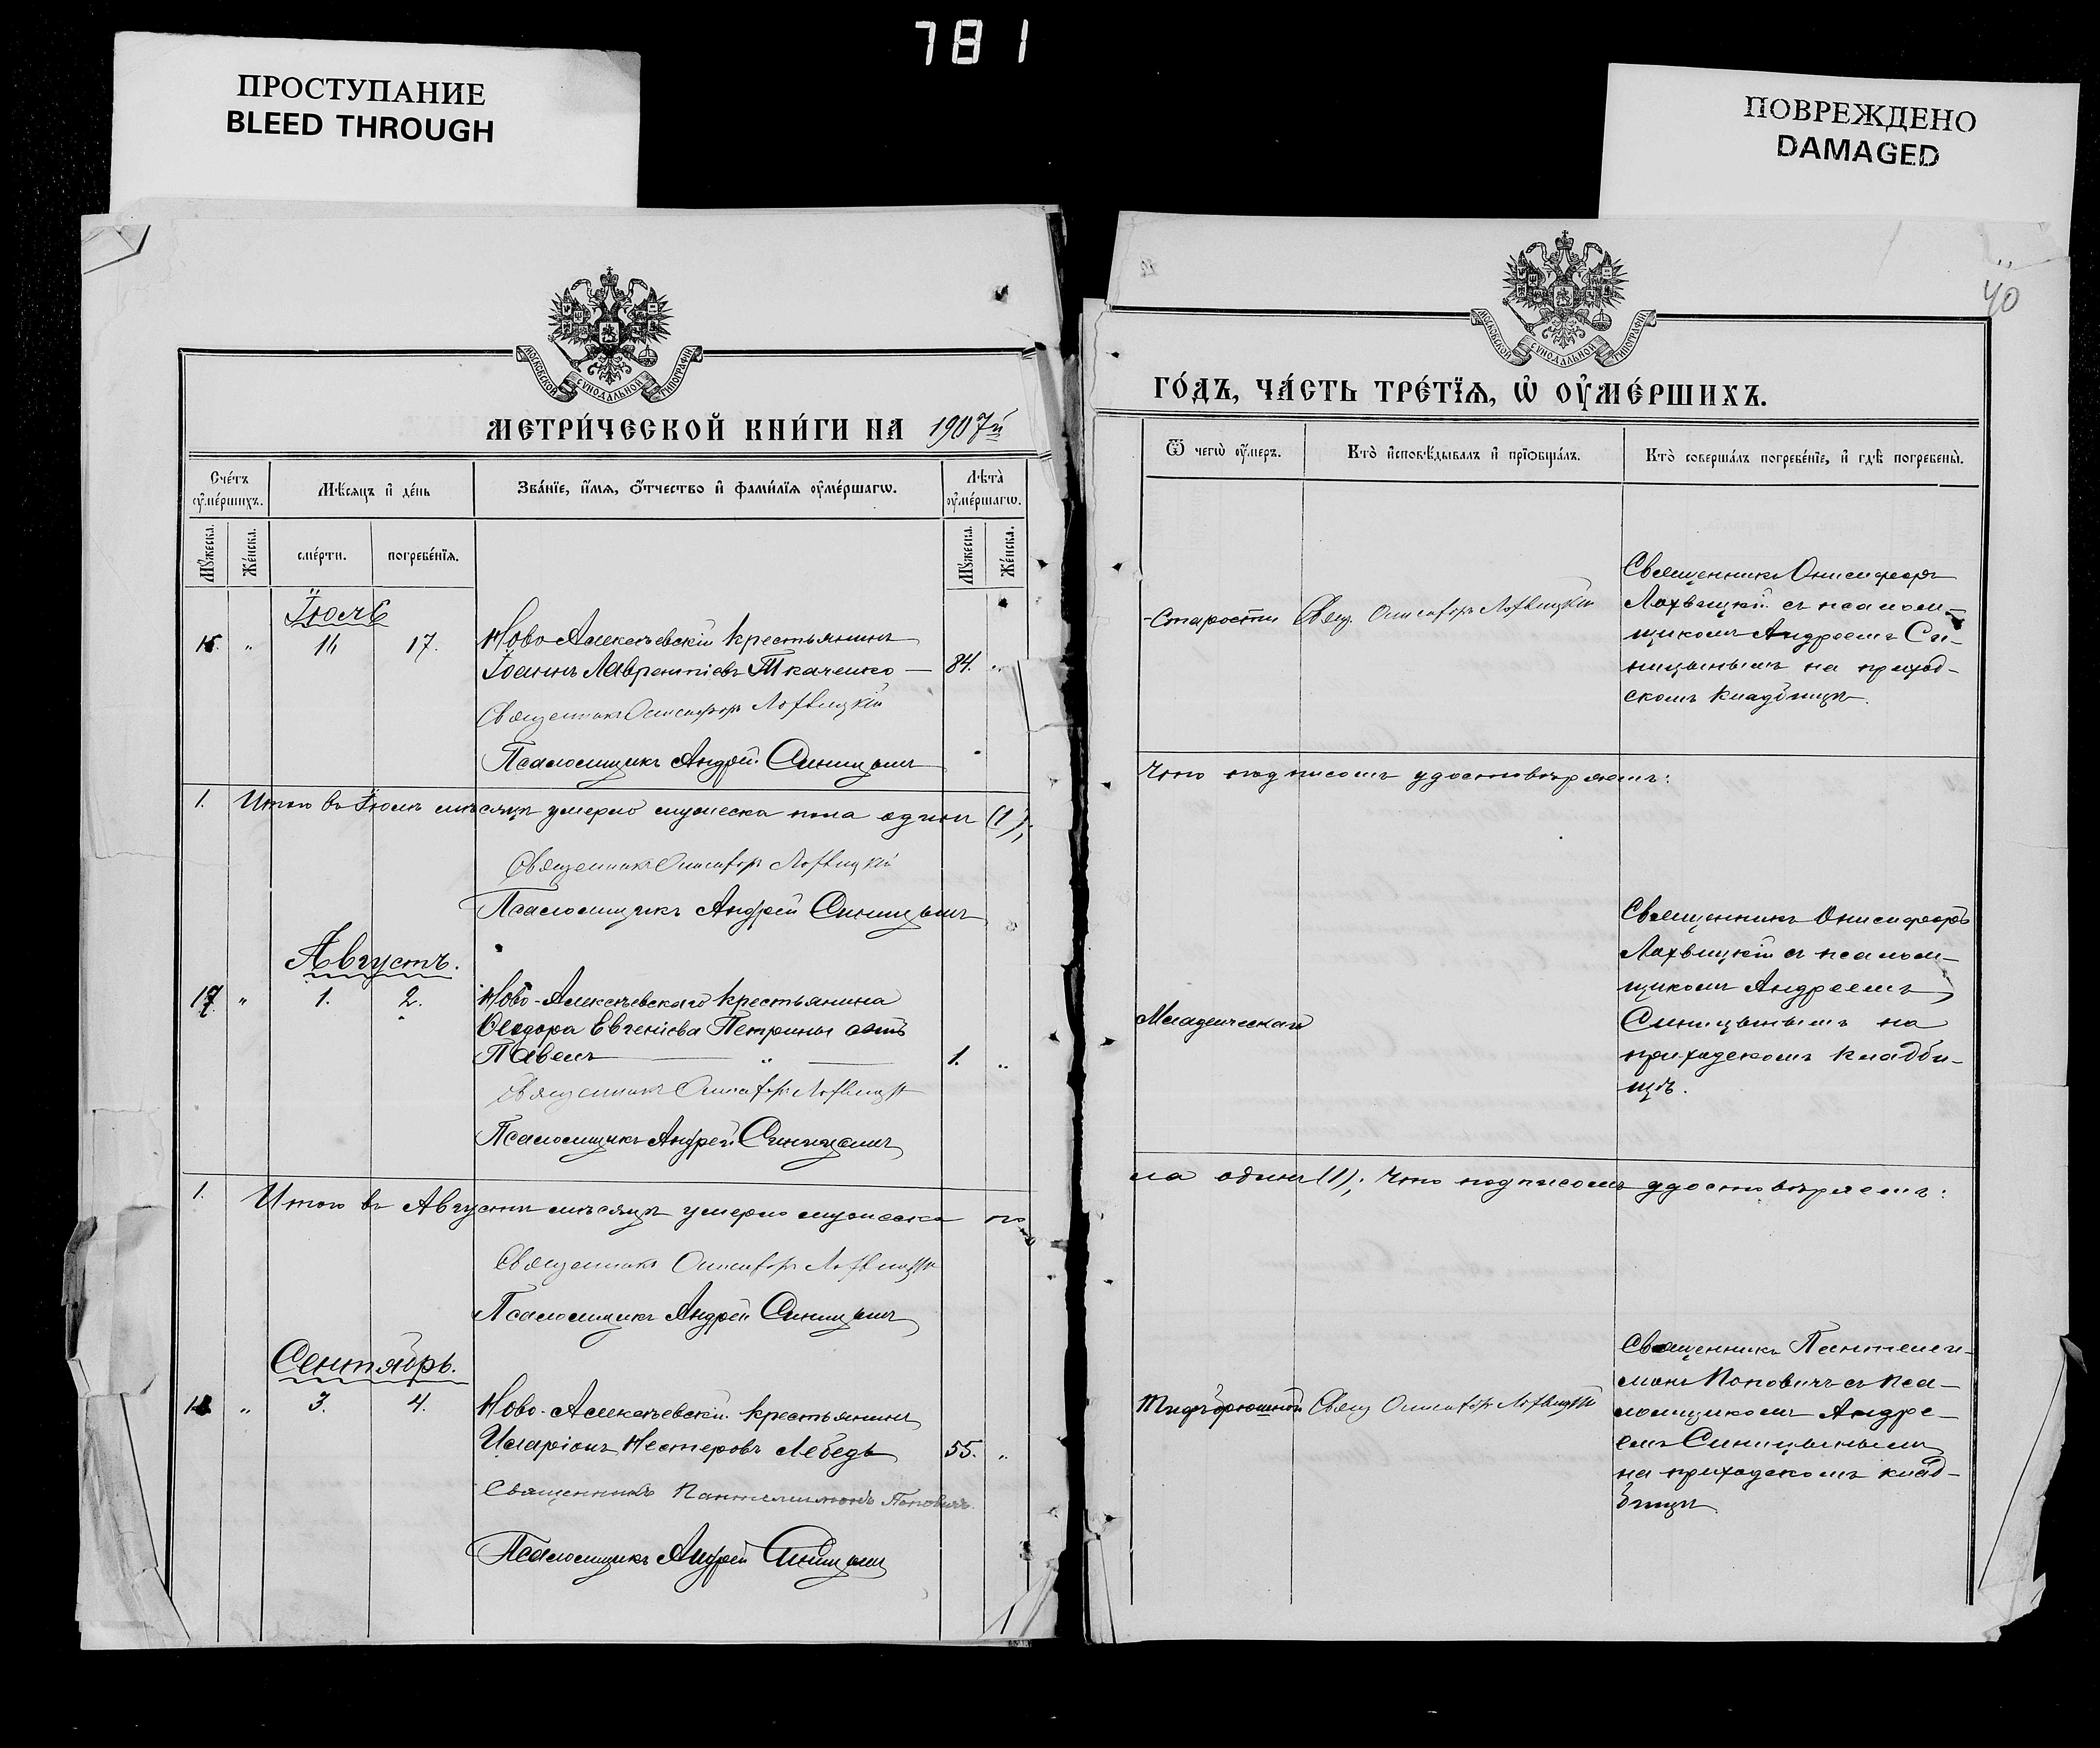 781
ПРОСТУПАНИЕ
BLEED THROUGH
ПОВРЕЖДЕНО
DAMAGED
МОСКОВСКОЙ СѴНОДАЛЬНОЙ ТИПОГРАФІИ
МЕТРИ́ЧЕСКОЙ КНИ́ГИ НА 1907й
Сче́тъ ᲂу҆ме́ршихъ.
Мѣ́сяцъ и҆ де́нь
Зва́нїе, и҆́мѧ, ѻ҆́тчество и҆ фами́лїѧ ᲂу҆ме́ршагѡ.
Лѣта̀ ᲂу҆ме́ршагѡ.
Мꙋ́жеска.
Же́нска.
сме́рти.
погребе́нїѧ.
Мꙋ́жеска.
Же́нска.
Іюль
16. " 17.
Ново-Алексѣевскій крестьянинъ
Іоаннъ Лаврентіевъ Ткаченко — 84. "
Священникъ Онисифоръ Лохвицкій
Псаломщикъ Андрей Синицынъ
1. Итого въ Іюлѣ мѣсяцѣ умерло мужеска пола одинъ (1);
Священникъ Онисифоръ Лохвицкій
Псаломщикъ Андрей Синицынъ
Августъ.
17 " 1. 2. Ново-Алексѣевскаго крестьянина
Ѳеодора Евгеніева Петрины сынъ
Павелъ — " — 1. "
Священникъ Онисифоръ Лохвицкій
Псаломщикъ Андрей Синицынъ
1. Итого въ Августѣ мѣсяцѣ умерло мужеска по
Священникъ Онисифоръ Лохвицкій
Псаломщикъ Андрей Синицынъ
Сентябрь.
18. " 3. 4. Ново-Алексѣевскій крестьянинъ
Иларіонъ Нестеровъ Лебедь 55. "
Священникъ Пантелиимонъ Поповичъ.
Псаломщикъ Андрей Синицынъ
40
МОСКОВСКОЙ СѴНОДАЛЬНОЙ ТИПОГРАФІИ
ГО́ДЪ, ЧА́СТЬ ТРЕ́ТЇѦ, Ѡ҆ ОУ҆МЕ́РШИХЪ.
Ѿ чегѡ̀ ᲂу҆́меръ.
Кто̀ и҆сповѣ́дывалъ и҆ прїѡбща́лъ.
Кто̀ соверша́лъ погребе́нїе, и҆ гдѣ̀ погребены̀.
Старости
Свящ. Онисифоръ Лохвицкій
Священникъ Онисифоръ
Лохвицкій съ псалом-
щикомъ Андреемъ Си-
ницынымъ на приход-
скомъ кладбищѣ.
Что подписомъ удостовѣряемъ:
Младенческая
Священникъ Онисифоръ
Лохвицкій съ псалом-
щикомъ Андреемъ
Синицынымъ на
приходскомъ кладби-
щѣ.
ла одинъ (1); Что подписомъ удостовѣряемъ:
Тифъ брюшной
Свящ Онисифоръ Лохвицкій
Священникъ Пантелеи-
монъ Поповичъ съ пса-
ломщикомъ Андре-
емъ Синицынымъ
на приходскомъ клад-
бищѣ